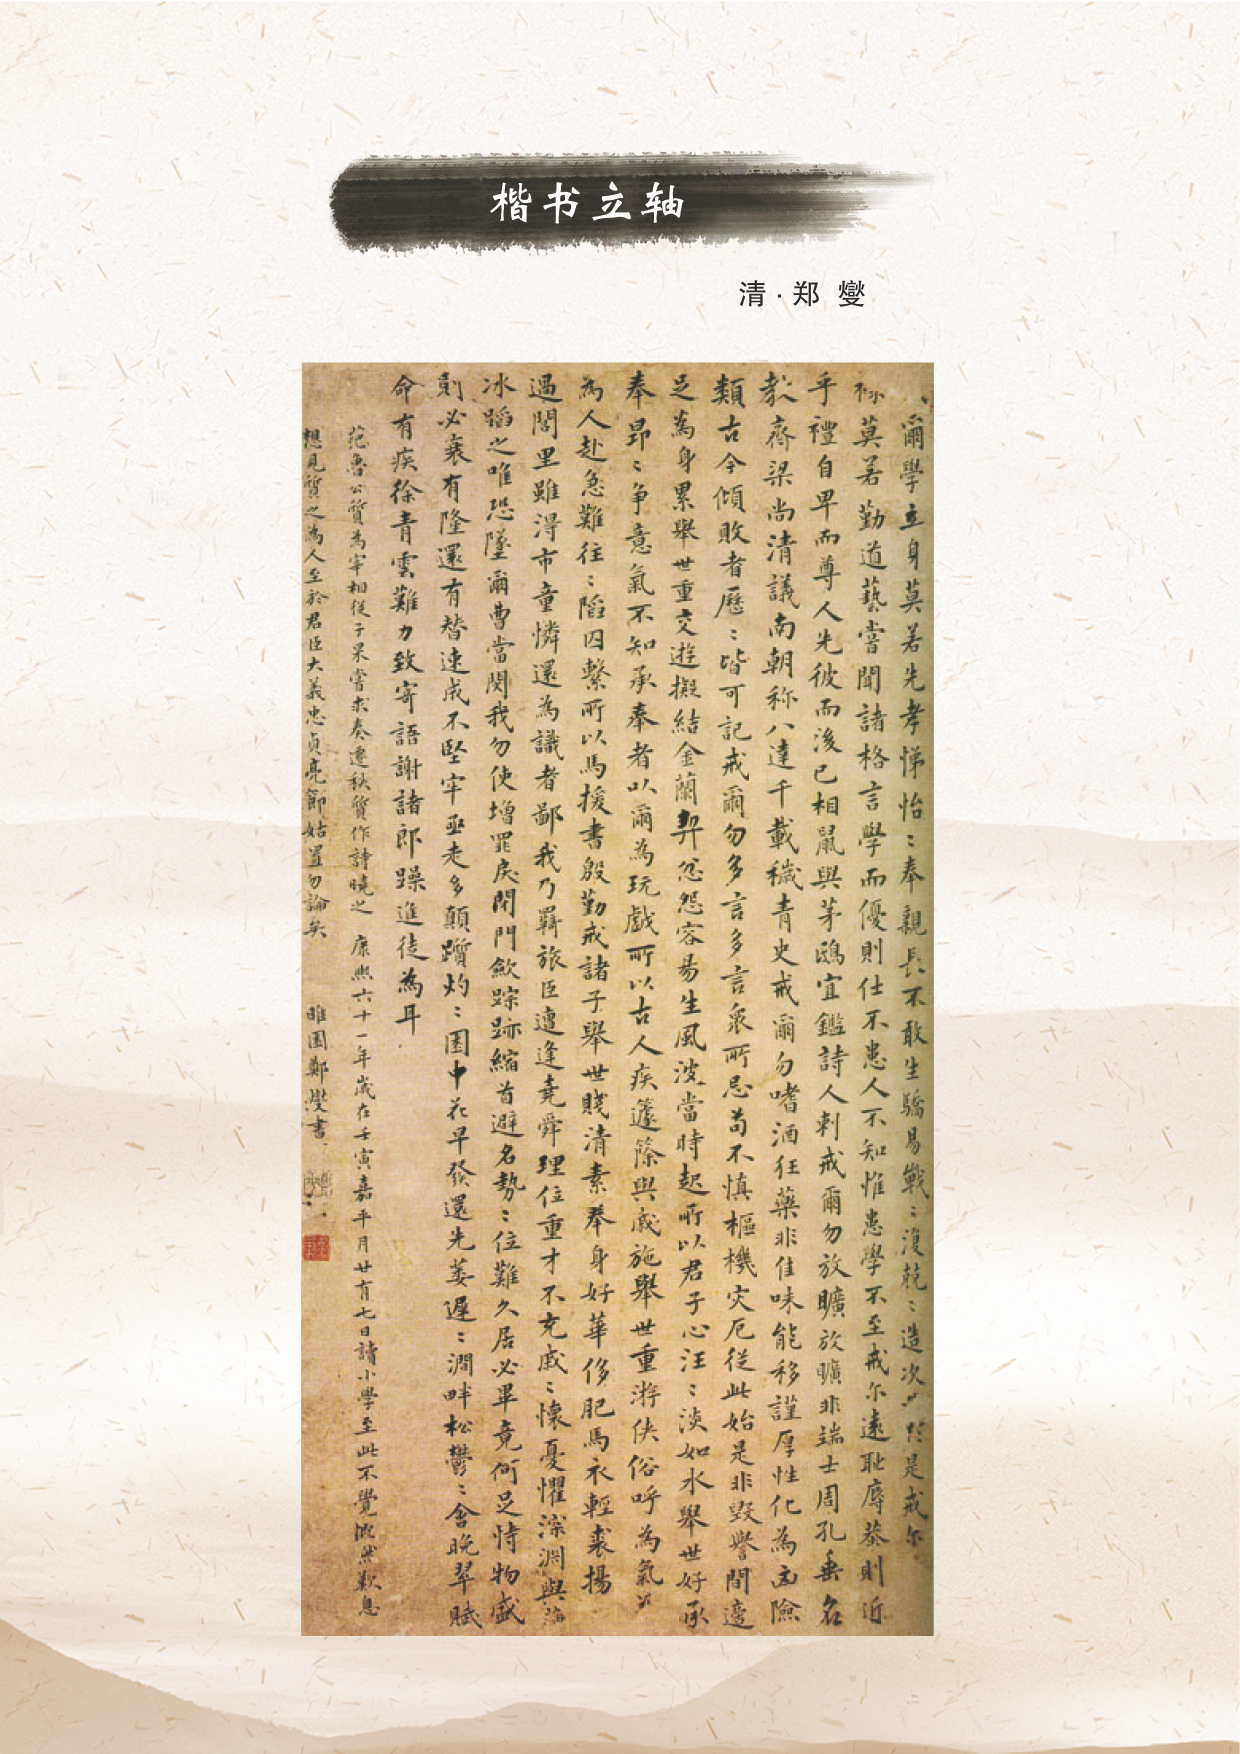 楷书立轴
清·郑 燮
爾學立身莫若先孝悌怡：奉親長不敢生驕易戰：復兢：造次於是戒尔
祿莫若勤道藝嘗聞諸格言學而優則仕不患人不知惟患學不至戒尔遠恥辱恭則近
乎禮自卑而尊人先彼而後已相鼠與茅鴟宜鑑詩人刺戒爾勿放曠放曠非端士周孔垂名
教齊梁尚清議南朝称八達千載穢青史戒爾勿嗜酒狂藥非佳味能移謹厚性化為凶險
類古今傾敗者歷：皆可記戒爾勿多言多言衆所忌苟不慎樞機灾厄從此始是非毀譽間邊
足為身累舉世重交遊擬結金蘭契忿怨容易生風波當時起所以君子心汪：淡如水舉世好承
奉昂：争意氣不知承奉者以爾為玩戲所以古人疾籧篨與戚施舉世重游俠俗呼為氣
為人赴急難往：陷囚繫所以馬援書殷勤戒諸子舉世賤清素奉身好華侈肥馬衣輕裘揚
過閭里雖得市童憐還為識者鄙我乃羇旅臣遭逢堯舜理位重才不充戚：懷憂懼深淵與
冰蹈之唯恐墜爾曹當閔我勿使增罪戾閉門歛踪跡縮首避名勢：位難久居必畢竟何足恃物盛
則必衰有隆還有替速成不堅牢亟走多顛躓灼：園中花早發還先萎遲：澗畔松鬱：含晚翠賦
命有疾徐青雲難力致寄語謝諸郎躁進徒為耳
范魯公質為宰相從子杲嘗求奏遷秩質作詩曉之 康熙六十一年歲在壬寅嘉平月廿有七日讀小學至此不覺慨然歎息
想見質之為人至於君臣大義忠貞亮節姑置勿論矣 鄭燮書